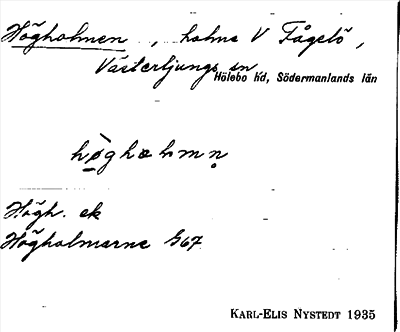 Högholmen, holme V Fågelö,
Västerljungs sn
Hölebo hd, Södermanlands län
hø̀ghɷlmn̥
Högh. ek
Högholmarne G67
KARL-ELIS NYSTEDT 1935